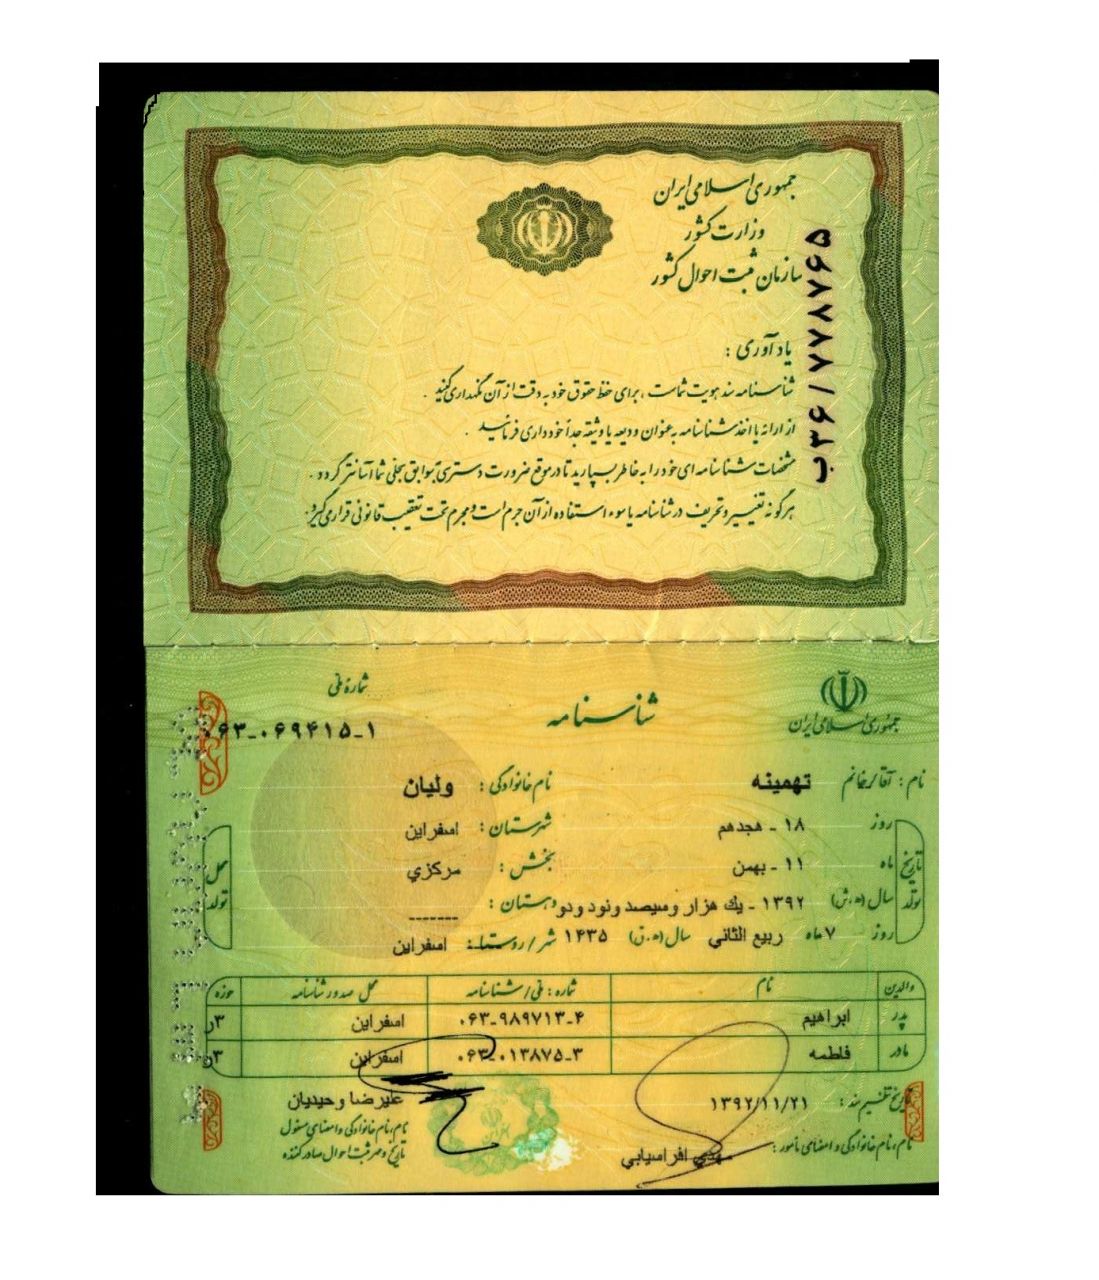 جمهوری اسلامی ایران
وزارت کشور
سازمان ثبت احوال کشور
ب۳۶/۷۷۸۷۶۵
یادآوری :
شناسنامه سند هویت شماست ، برای حفظ حقوق خود به دقت از آن نگهداری کنید .
از ارائه یا اخذ شناسنامه به عنوان ودیعه یا وثیقه جداً خودداری فرمائید .
مشخصات شناسنامه ای خود را به خاطر بسپارید تا در موقع ضرورت دسترسی به سوابق سجلی شما آسانتر گردد .
هرگونه تغییر و تحریف در شناسنامه یا سوء استفاده از آن جرم است و مجرم تحت تعقیب قانونی قرار می گیرد .
جمهوری اسلامی ایران
شناسنامه
شماره ملی
۰۶۳-۰۶۹۴۱۵-۱
نام : آقا/خانم تهمینه نام خانوادگی : ولیان
تاریخ تولد
محل تولد
روز ۱۸ - هجدهم شهرستان : اسفراین
ماه ۱۱ - بهمن بخش : مرکزي
سال (ه.ش) ۱۳۹۲ - یك هزار وسیصد ونود ودو دهستان : -------
روز ۷ ماه ربیع الثاني سال (ه.ق) ۱۴۳۵ شهر/روستا : اسفراین
والدین نام شماره : ملی/شناسنامه محل صدور شناسنامه حوزه
پدر ابراهیم ۰۶۳-۹۸۹۷۱۳-۴ اسفراین ۳ر
مادر فاطمه ۰۶۳-۰۱۳۸۷۵-۳ اسفراین ۳ن
تاریخ تنظیم سند : ۱۳۹۲/۱۱/۲۱
نام،نام خانوادگی و امضای مأمور : مهدي افراسیابي
علیرضا وحیدیان
نام،نام خانوادگی و امضای مسئول
تاریخ و مهر ثبت احوال صادر کننده